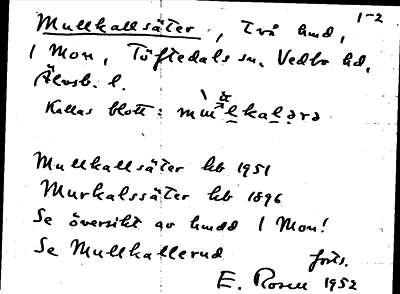 1-2
Mullkallsäter, Två hmd,
1 Mon, Töftedals sn. Vedbo hd,
Älvsb. l.
Kallas blott:
Mullkallsäter kb 1951
Murkalssäter kb 1896
Se översikt av hmdd 1 Mon!
Se Mullkallerud forts.
E. Rosell 1952